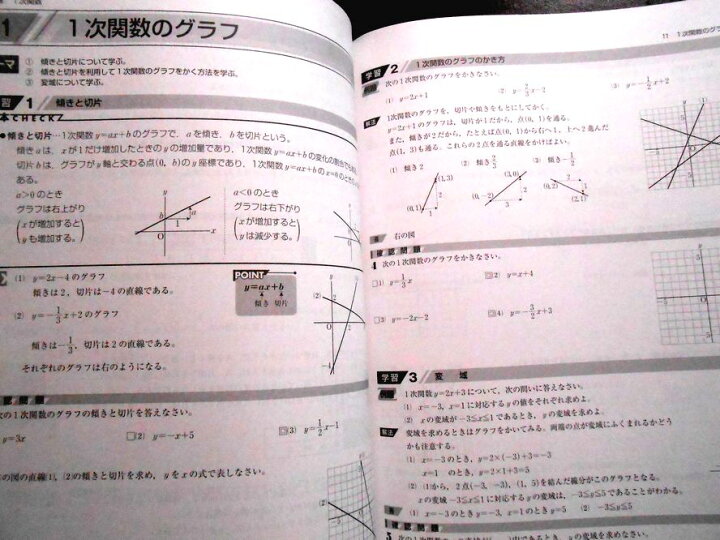 1次関数
1 1次関数のグラフ
ーマ ① 傾きと切片について学ぶ。
② 傾きと切片を利用して1次関数のグラフをかく方法を学ぶ。
③ 変域について学ぶ。
習 1 傾きと切片
CHECK
●傾きと切片…1次関数y=ax+bのグラフで, aを傾き, bを切片という。
傾きaは, xが1だけ増加したときのyの増加量であり, 1次関数y=ax+bの変化の割合で
切片bは, グラフがy軸と交わる点(0, b)のy座標であり, 1次関数y=ax+bのx=0のとき
ある。
a>0のとき
グラフは右上がり
(xが増加すると
yも増加する。)
y
b
a
1
O
x
a<0のとき
グラフは右下がり
(xが増加すると
yは減少する。)
(1) y=2x-4のグラフ
傾きは2, 切片は-4の直線である。
(2) y=-1/3x+2のグラフ
傾きは-1/3, 切片は2の直線である。
それぞれのグラフは右のようになる。
POINT
y=ax+b
傾き 切片
y
(2)
2
-4
認問題
の1次関数のグラフの傾きと切片を答えなさい。
y=3x
□(2) y=-x+5
□(3) y=1/2x-1
の図の直線(1), (2)の傾きと切片を求め, yをxの式で表しなさい。
(2)
11 1次関数のグラ
学習 2 1次関数のグラフのかき方
次の1次関数のグラフをかきなさい。
(1) y=2x+1
(2) y=2/3x-2
(3) y=-1/2x+2
解法 1次関数のグラフを, 切片や傾きをもとにしてかく。
y=2x+1のグラフは, 切片が1だから, 点(0, 1)を通る。
また, 傾きが2だから, たとえば点(0, 1)から右へ1, 上へ2進んだ
点(1, 3)も通る。これらの2点を通る直線をかけばよい。
(1) 傾き2
(2) 傾き2/3
(3) 傾き-1/2
(1,3)
2
(0,1)
1
(3,0)
2
(0,-2)
3
(0,2)
2
(2,1)
1
右の図
確認問題
4 次の1次関数のグラフをかきなさい。
□(1) y=1/3x
□(2) y=x+4
□(3) y=-2x-2
□(4) y=-3/2x+3
学習 3 変域
1次関数y=2x+3について, 次の問いに答えなさい。
(1) x=-3, x=1に対応するyの値をそれぞれ求めよ。
(2) xの変域が-3≦x≦1であるとき, yの変域を求めよ。
解法 変域を求めるときはグラフをかいてみる。両端の点が変域にふくまれるかどう
かも注意する。
(1) x=-3のとき, y=2×(-3)+3=-3
x=1 のとき, y=2×1+3=5
(2) (1)から, 2点(-3, -3), (1, 5)を結んだ線分がこのグラフとなる。
xの変域-3≦x≦1に対応するyの変域は, -3≦y≦5であることがわかる。
(1) x=-3のときy=-3, x=1のときy=5 (2) -3≦y≦5
確認問題